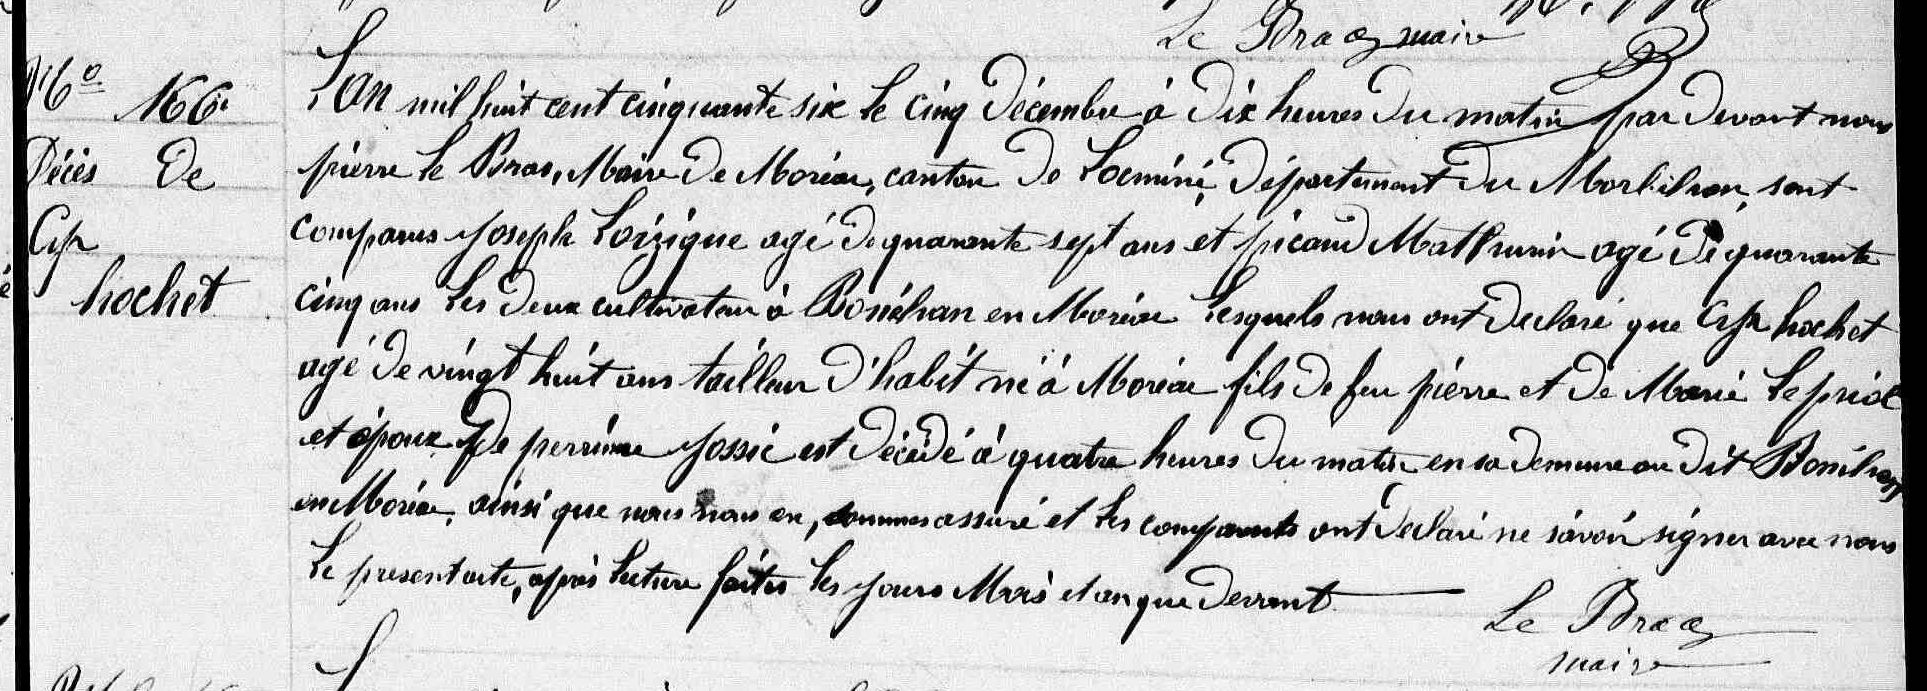 Le Bras maire
No 166
Décès de
Cyr
hochet
L'An mil huit cent cinquante six le cinq Décembre à Dix heures Du matin par Devant nous
pierre le Bras, Maire De Moréac, canton de Locminé, Département Du Morbihan, sont
comparus joseph Loizique agé de quarante sept ans et picaud Mathurin agé De quarante
cinq ans Les Deux cultivateur à Boséhan en Moréac Lesquels nous ont Declaré que Cyr hochet
agé De vingt huit ans tailleur D'habit né à Moréac fils De feu pierre et De Marie Le priol
et époux De perrine jossic est Décédé à quatre heures Du matin en sa Demeure au dit
en Moréac, ainsi que nous nous en, sommes assuré et Les comparants ont Declaré ne savoir signer avec nous
Le present acte, après lecture faites Les jours Mois et an que Devant
Le Bras
maire